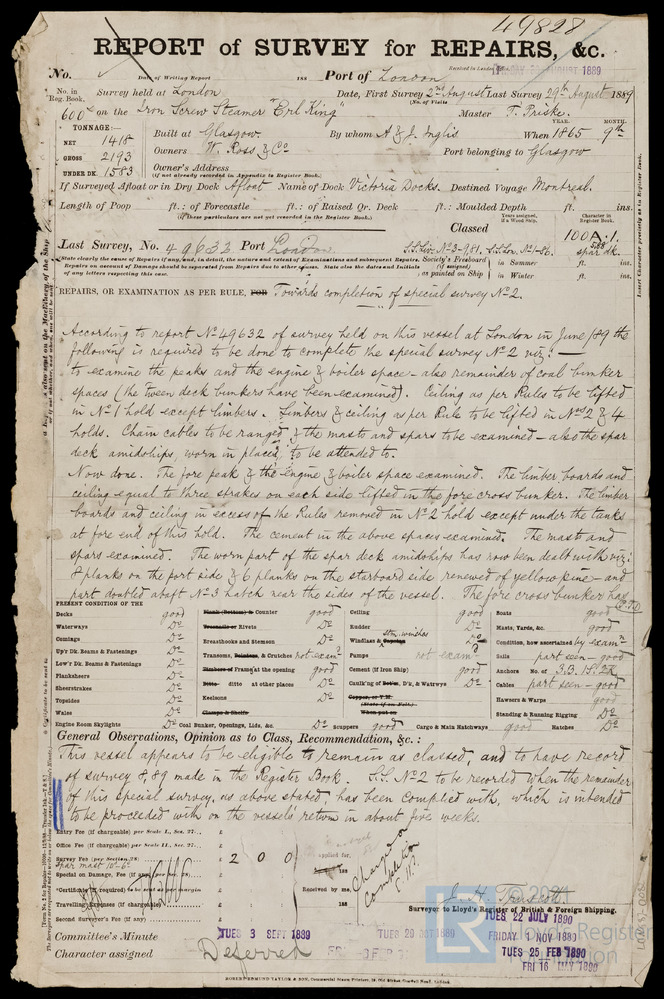 49828
REPORT of SURVEY for REPAIRS, &c.
No. Date of Writing Report 188 Port of London Received in London AUGUST 1889
No. in Reg. Book. Survey held at London Date, First Survey 2nd August Last Survey 29th August 1889
(No. of Visits)
600 on the Iron Screw Steamer "Erl King" Master T. Priske.
TONNAGE:— YEAR. MONTH.
NET 1418 Built at Glasgow By whom A & J. Inglis When 1865 9th
GROSS 2193 Owners W. Ross & Co Port belonging to Glasgow
UNDER DK. 1583 Owner's Address
(if not already recorded in Appendix to Register Book.)
If Surveyed Afloat or in Dry Dock Afloat Name of Dock Victoria Docks. Destined Voyage Montreal.
Length of Poop ft.: of Forecastle ft.: of Raised Qr. Deck ft.: Moulded Depth ft. ins.
(If these particulars are not yet recorded in the Register Book.)
Years assigned, if a Wood Ship. Character in Register Book.
Classed 100A.1. spar dk.
Last Survey, No. 49632 Port London S.S. Liv. No 3-9.81, S.S. Lon. No 1-86.
State clearly the cause of Repairs if any, and, in detail, the nature and extent of Examinations and subsequent Repairs.
Repairs on account of Damage should be separated from Repairs due to other causes. State also the dates and Initials
of any letters respecting this case.
Society's Freeboard (if assigned) as painted on Ship in Summer ft. ins.
in Winter ft. ins.
REPAIRS, OR EXAMINATION AS PER RULE, FOR Towards completion of special survey No 2.
According to report No 49632 of survey held on this vessel at London in June/89 the
following is required to be done to complete the special survey No 2 viz:—
to examine the peaks and the engine & boiler space - also remainder of coal bunker
spaces (the tween deck bunkers have been examined). Ceiling as per Rules to be lifted
in No 1 hold except limbers. Limbers & ceiling as per Rule to be lifted in Nos 2 & 4
holds. Chain cables to be ranged & the masts and spars to be examined - also the spar
deck amidships, worn in places, to be attended to.
Now done. The fore peak & the engine & boiler space examined. The limber boards and
ceiling equal to three strakes on each side lifted in the fore cross bunker. The limber
boards and ceiling in excess of the Rules removed in No 2 hold except under the tanks
at fore end of this hold. The cement in the above spaces examined. The masts and
spars examined. The worn part of the spar deck amidships has now been dealt with viz:
8 planks on the port side & 6 planks on the starboard side renewed of yellow pine - and
part doubled abaft No 3 hatch near the sides of the vessel. The fore cross bunker has
(P.T.O.
PRESENT CONDITION OF THE
Decks good
Waterways Do
Comings Do
Up'r Dk. Beams & Fastenings Do
Low'r Dk. Beams & Fastenings Do
Planksheers Do
Sheerstrakes Do
Topsides Do
Wales Do
Engine Room Skylights Do
Plank (Bottom) & Counter good
Treenails or Rivets Do
Breasthooks and Stemson Do
Transoms, Pointers, & Crutches not examd
Timbers of Frame at the opening good
Ditto ditto at other places Do
Keelsons Do
Clamps & Shelfs
Coal Bunker, Openings, Lids, &c. Do
Ceiling good
Rudder Do
Windlass & Capstan Stm. winches Do
Pumps not examd
Cement (if Iron Ship) good
Caulk'ng of Bot'm, D'k, & Watrwys Do
Copper, or Y.M.
(State if on Felt.)
When put on
Scuppers good
Cargo & Main Hatchways good
Boats good
Masts, Yards, &c. good
Condition, how ascertained by examn
Sails part seen - good
Anchors No. of 3.B. 1S. 2K
Cables part seen - good
Hawsers & Warps good
Standing & Running Rigging Do
Hatches Do
General Observations, Opinion as to Class, Recommendation, &c.:
This vessel appears to be eligible to remain as classed, and to have record
of survey 8,89 made in the Register Book. S.S. No 2 to be recorded when the remainder
of this special survey, as above stated, has been complied with, which is intended
to be proceeded with on the vessels return in about five weeks.
Entry Fee (if chargeable) per Scale I., Sec. 27... £
Office Fee (if chargeable) per Scale II., Sec. 27... £
Survey Fee (per Section 28) £ 2 0 0
Spar mast 10-6
Special on Damage, Fee (if any) per Sec. 28.. £
Certificate (if required) to be sent as per margin
Travelling Expenses (if chargeable) £
Second Surveyor's Fee (if any) £
applied for,
188
Received by me,
188
Charged on
Completion
Surveyor to Lloyd's Register of British & Foreign Shipping.
Committee's Minute TUES 3 SEPT 1889 TUES 29 OCT 1889 TUES 22 JULY 1890
FRIDAY 1 NOV 1889
TUES 25 FEB 1890
Character assigned Deferred FRI 16 MAY 1890
Lloyd's Register